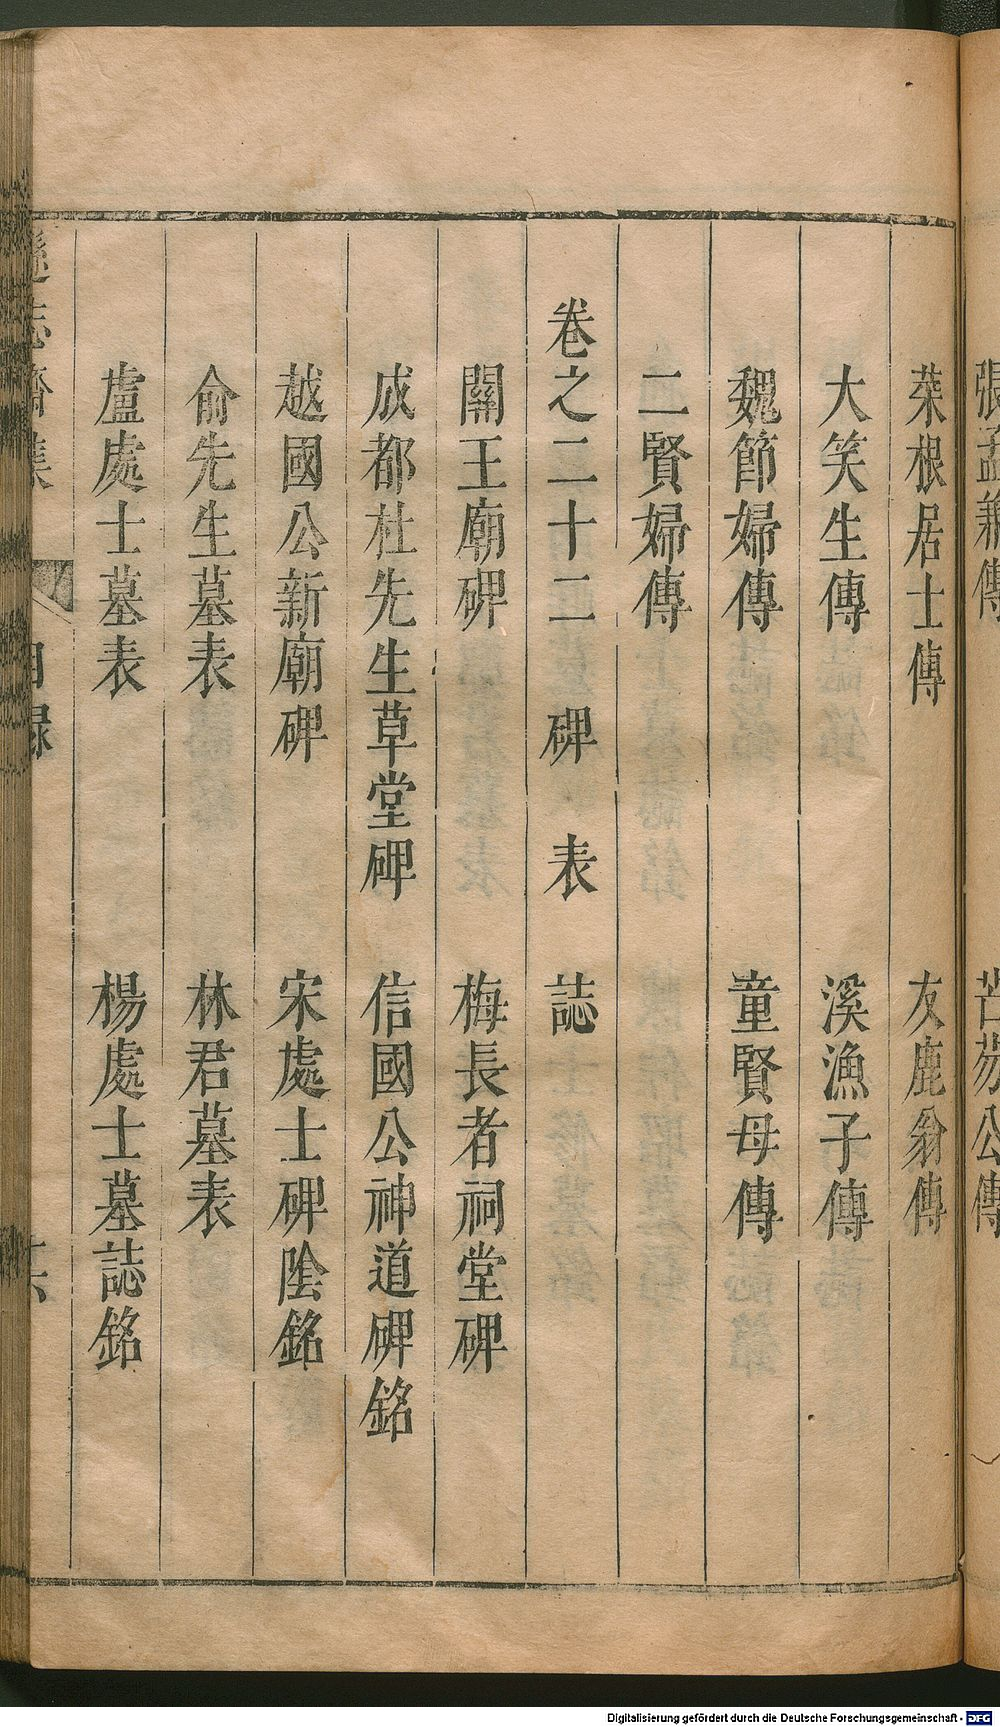 張孟兼傳　苦芴公傳
菜根居士傳　友鹿翁傳
大笑生傳　溪漁子傳
魏節婦傳　童賢母傳
二賢婦傳
卷之二十二　碑　表　誌
關王廟碑　梅長者祠堂碑
成都杜先生草堂碑　信國公神道碑銘
越國公新廟碑　宋處士碑陰銘
俞先生墓表　林君墓表
盧處士墓表　楊處士墓誌銘
遜志齋集　目録　十六
Digitalisierung gefördert durch die Deutsche Forschungsgemeinschaft - DFG